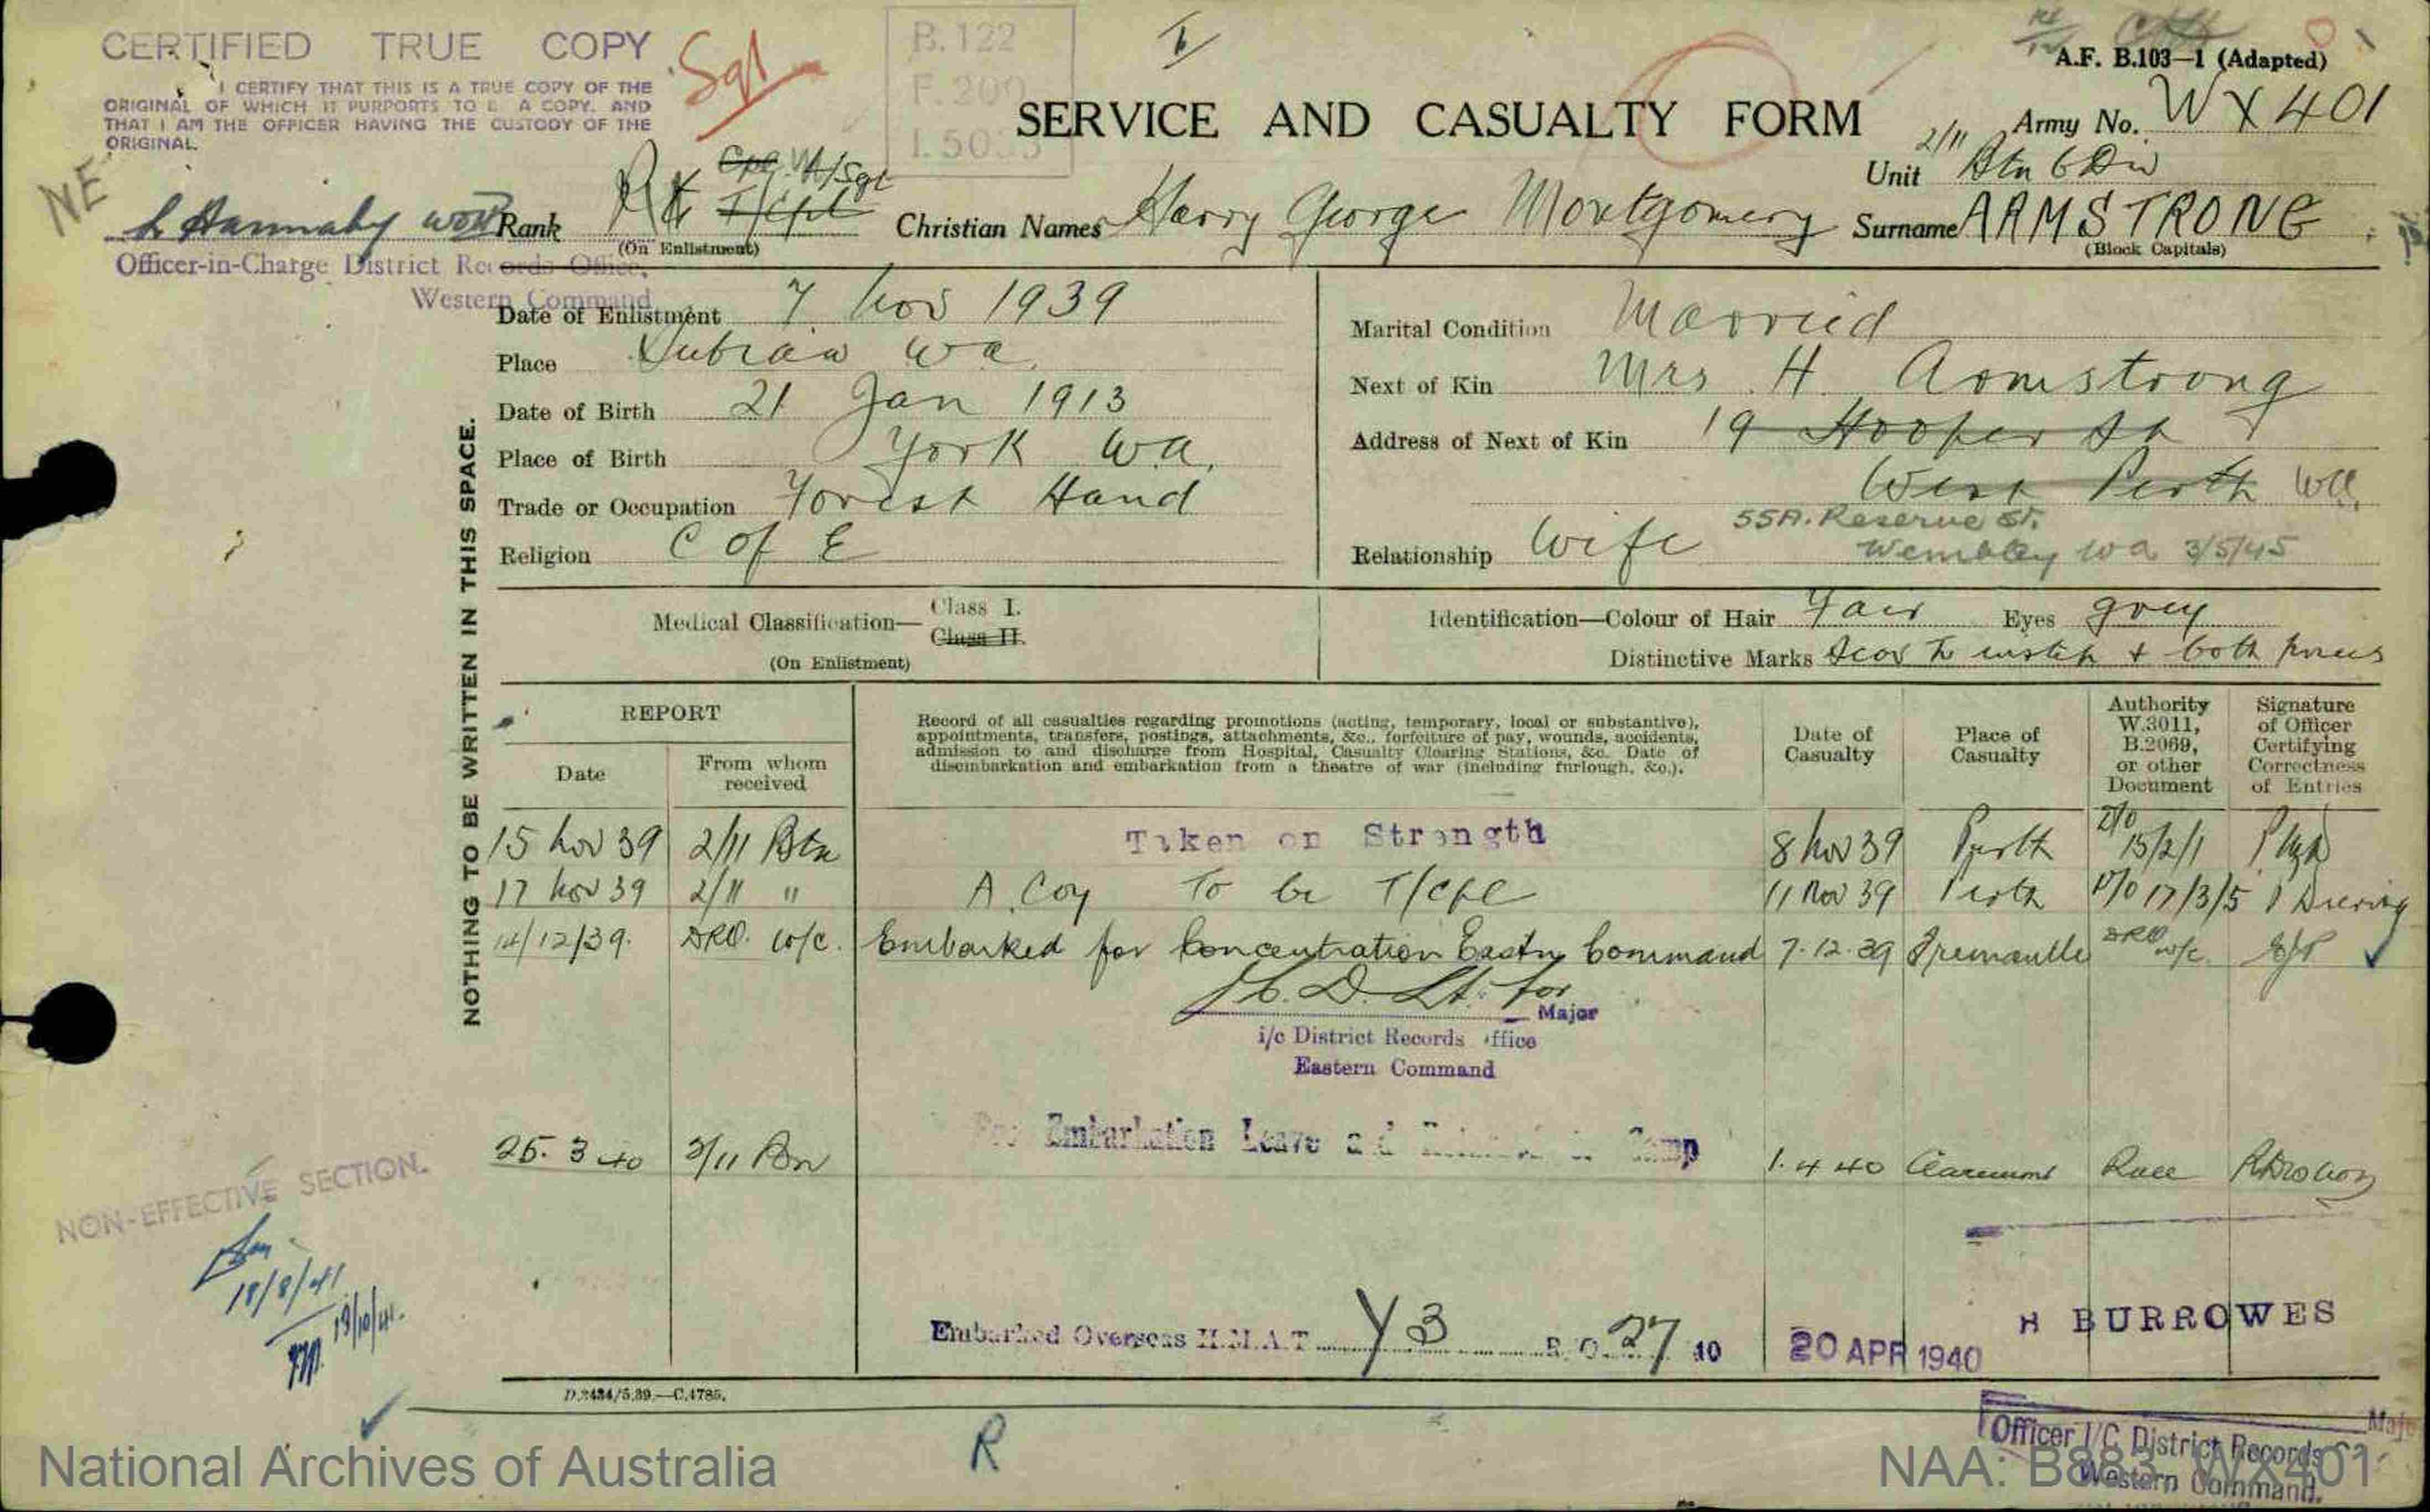 CERTIFIED TRUE COPY
I CERTIFY THAT THIS IS A TRUE COPY OF THE
ORIGINAL OF WHICH IT PURPORTS TO BE A COPY, AND
THAT I AM THE OFFICER HAVING THE CUSTODY OF THE
ORIGINAL.
Sgt
B.122
F.200
A.F. B.103—1 (Adapted)
SERVICE AND CASUALTY FORM
Army No. WX401
Unit 2/11 Btn 6 Div
NE
Cpl. W/Sgt
Rank Pte T/Cpl
(On Enlistment)
Christian Names Harry George Montgomery Surname ARMSTRONG
(Block Capitals)
Officer-in-Charge District Records Office,
Western Command
Date of Enlistment 7 Nov 1939
Place Subiaco WA
Date of Birth 21 Jan 1913
Place of Birth York W.A.
Trade or Occupation Forest Hand
Religion C of E
Marital Condition Married
Next of Kin Mrs H Armstrong
Address of Next of Kin 19 Hooper St
West Perth WA.
55A. Reserve St.
Wembley WA 3/5/45
Relationship Wife
NOTHING TO BE WRITTEN IN THIS SPACE.
Medical Classification— Class I.
Class II.
(On Enlistment)
Identification—Colour of Hair Fair Eyes grey
Distinctive Marks Scar instep + both knees
REPORT
Date
From whom received
Record of all casualties regarding promotions (acting, temporary, local or substantive),
appointments, transfers, postings, attachments, &c., forfeiture of pay, wounds, accidents,
admission to and discharge from Hospital, Casualty Clearing Stations, &c. Date of
disembarkation and embarkation from a theatre of war (including furlough, &c.).
Date of Casualty
Place of Casualty
Authority W.3011, B.2069, or other Document
Signature of Officer Certifying Correctness of Entries
15 Nov 39 2/11 Btn Taken on Strength 8 Nov 39 Perth 15/2/1
17 Nov 39 2/11 " A Coy To be T/Cpl 11 Nov 39 Perth 17/3/5
14/12/39. DRO. W/C. Embarked for Concentration Eastn Command 7.12.39 Fremantle DRO W/C.
Lt. for
Major
i/c District Records Office
Eastern Command
25.3.40 2/11 Bn Embarkation Leave and Camp 1.4.40 Claremont
NON-EFFECTIVE SECTION.
18/8/41
19/10/41.
Embarked Overseas H.M.A.T. Y3 R.O. 27 40 20 APR 1940
H BURROWES
D.2484/5.39.—C.4785.
R
Officer I/C District Records
Western Command.
National Archives of Australia
NAA: B883, WX401